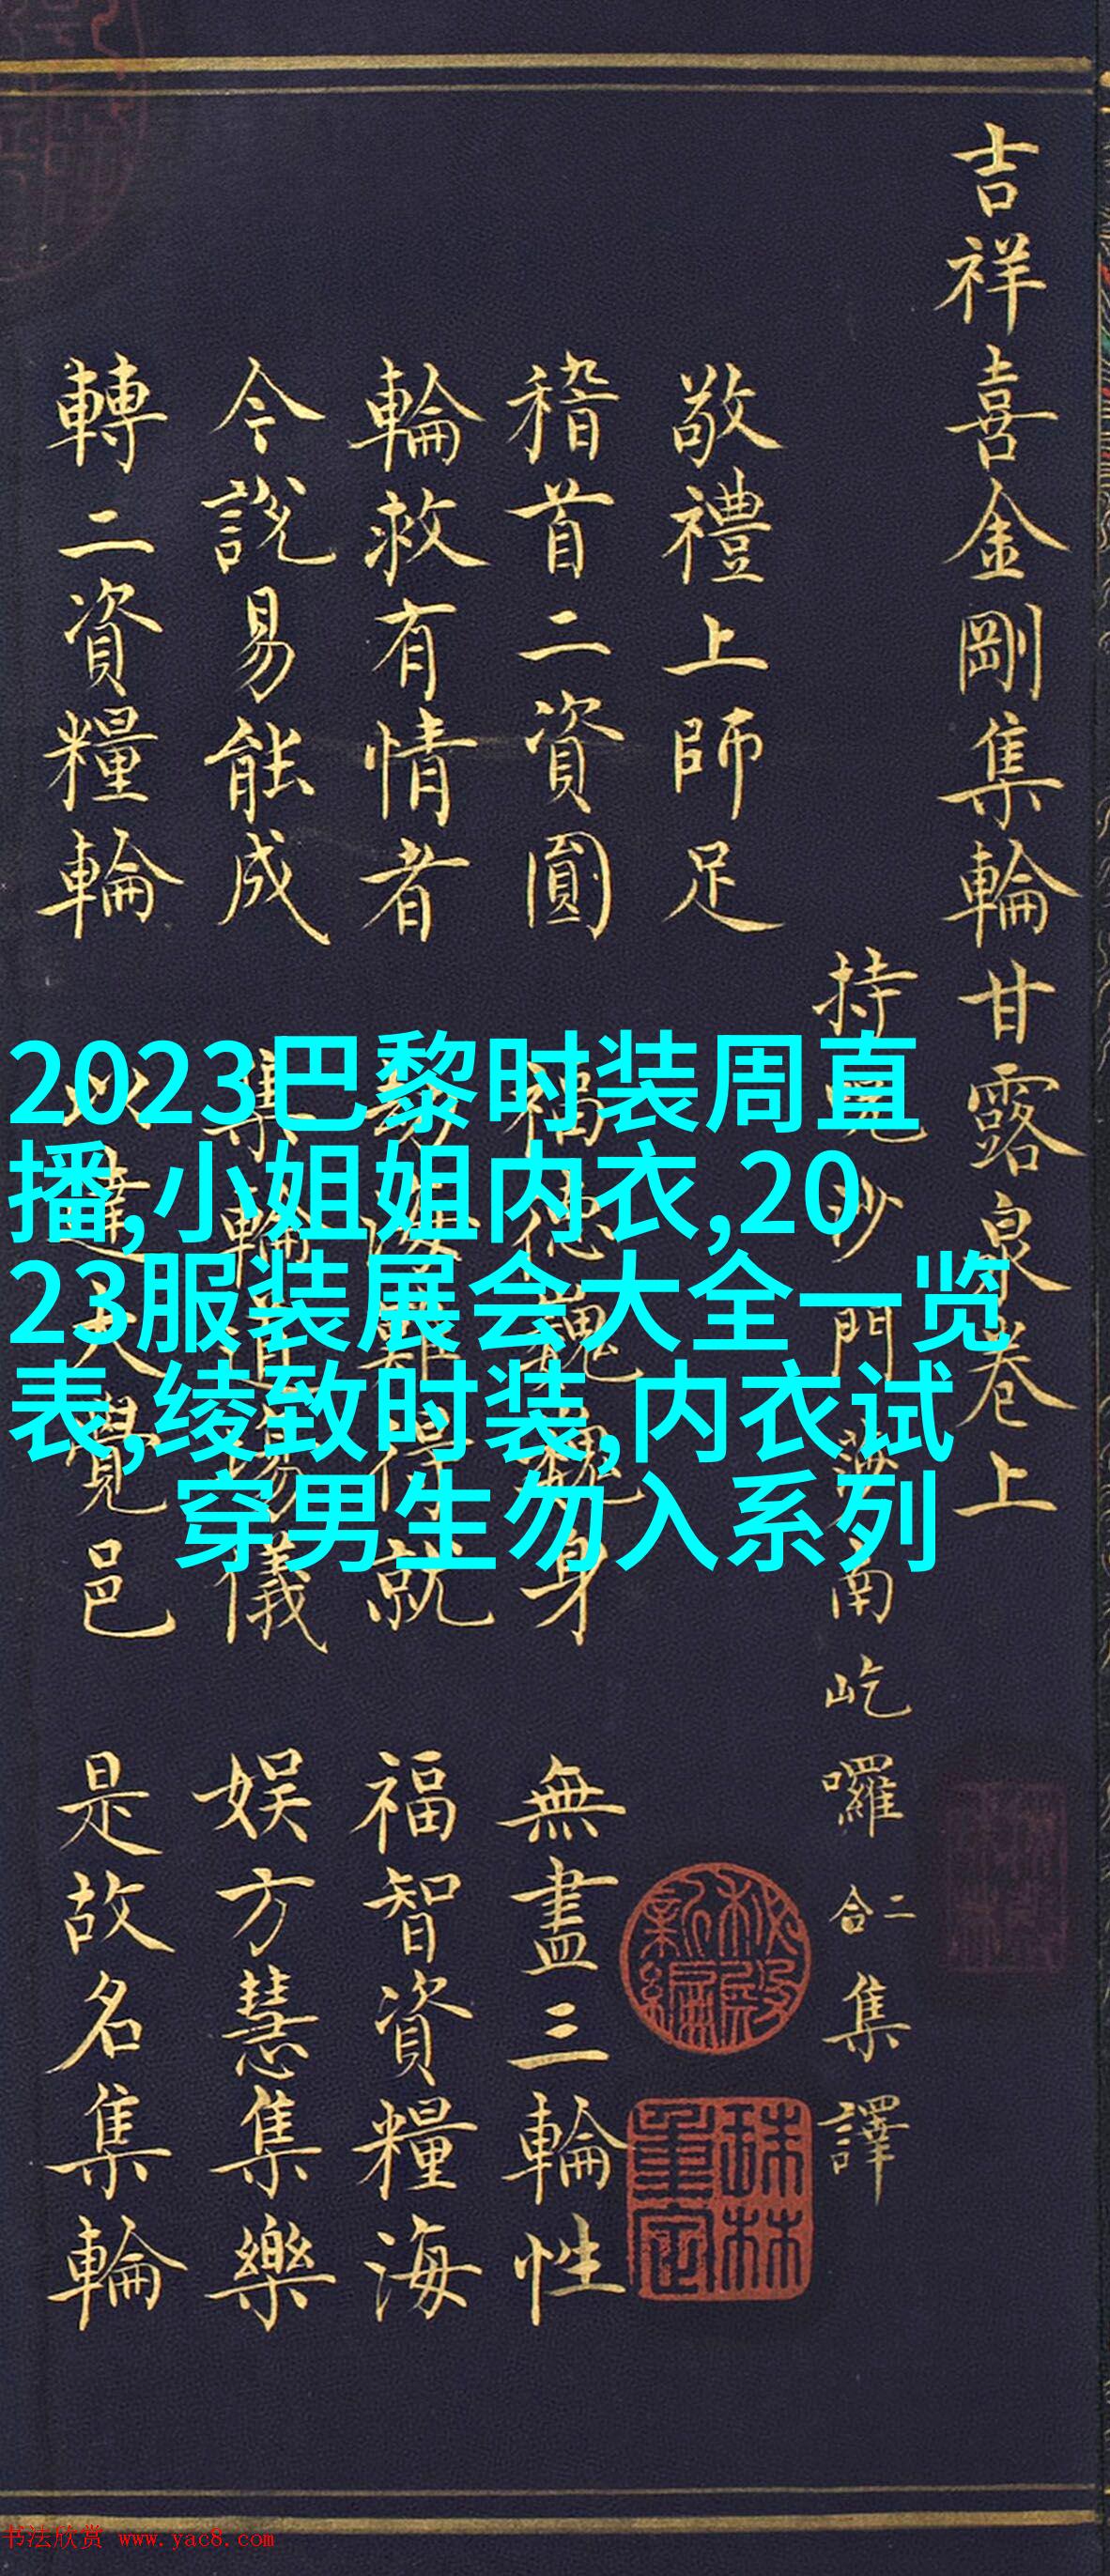 吉祥喜金剛集輪甘露泉卷上
持 沙門 南屹囉二合集譯
敬禮上師足
稽首二資圓 福德巍巍身 無盡三輪性
輪救有情者 難得就 福智資糧海
今說易能成 集輪 儀 娱方慧集樂
轉二資糧輪 達大覺邑 是故名集輪
2023巴黎时装周直
播,小姐姐内衣,20
23服装展会大全一览
表,绫致时装,内衣试
穿男生勿入系列
秘殿新編
珠林重定
书法欣赏 www.yac8.com